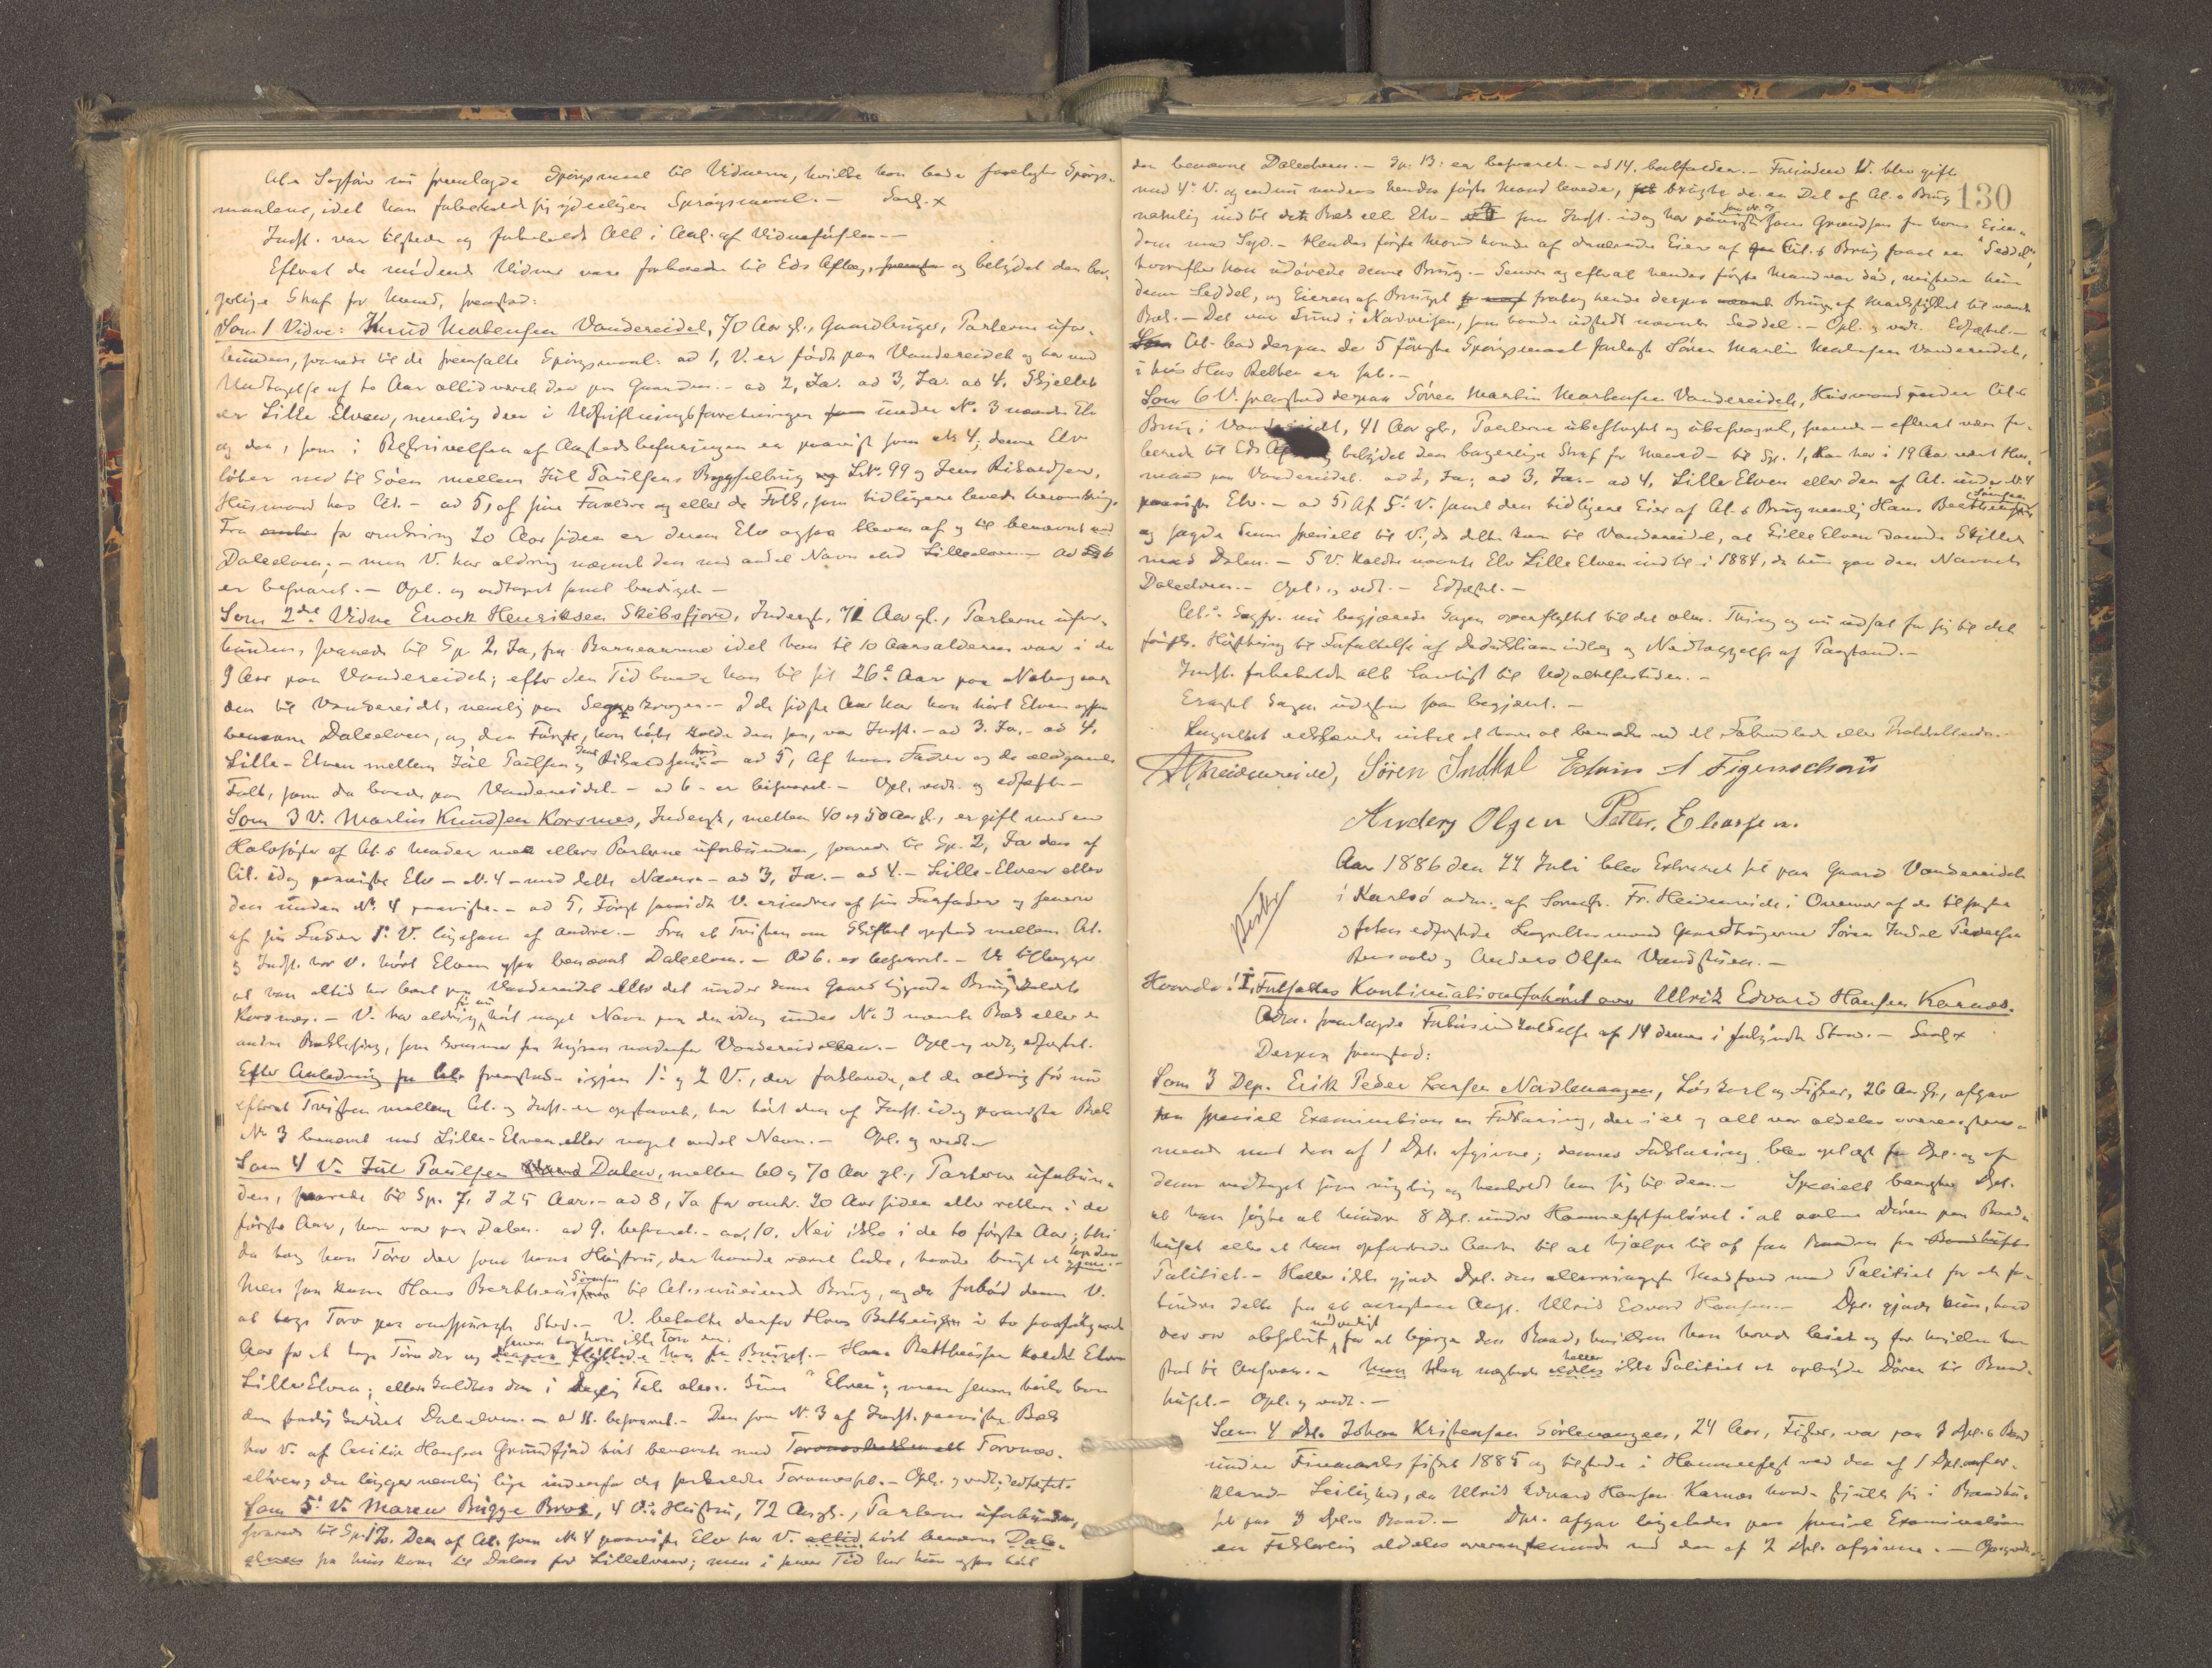 Cit.s Sagfører nu fremlagde Spørgsmaal til Vidnerne, hvilke han bad forelagte Spørgs-
maalene, idet han forbeholdt sig yderligere Spørgsmaal. – Saal. x
Indst. var tilstede og forbeholdt Alt i Anl. af Vidneførslen. –
Efterat de mødende Vidner vare forberedte til Eds Aflæg, og betydet den bor-
gerlige Straf for Meened, fremstod:
Som 1 Vidne: Knud Mortensen Vandereidet, 70 Aar gl., Gaardbruger, Parterne ufor-
bunden, svarede til de fremsatte Spørgsmaal: ad 1, V. er født paa Vandereidet og har med
Undtagelse af to Aar altid været der paa Gaarden. – ad 2, Ja. ad 3, Ja. ad 4, Skjellet
er Lille Elven, nemlig den i Udskiftningsforretningen under No. 3 nævnte Elv
og den, som i Beskrivelsen af Aastedsbefaringen er paavist som No 4; denne Elv
løber ned til Søen mellem Jul Paulsens Bygselbrug LNo. 99 og Jens Rikardsen,
Husmand hos Cit. – ad 5, af sine Forældre og eller de Folk, som tidligere levede heromkring.
Fra for omkring 20 Aar siden er denne Elv ogsaa bleven af og til benævnt med
Daleelven; – men V. har aldrig nævnt den med andet Navn end Lilleelven – ad 6
er besvaret. – Opl. og vedtaget samt beediget. –
Som 2det Vidne Enock Henriksen Skibsfjord, Inderst, 71 Aar gl., Parterne ufor-
bunden, svarede til Sp. 2, Ja, fra Barneaarene idet han til 10 Aarsalderen var i de
9 Aar paa Vandereidet; efter den Tid boede han til sit 26de Aar paa Nabogaar
den til Vandereidet, nemlig paa . – I de sidste Aar har han hørt Elven ogsaa
benævne Daleelven, og den Første, han hørte kalde den saa, var Indst. – ad 3. Ja. – ad 4,
Lille-Elven mellem Jul Paulsen og Jens Rikardsens Brug – ad 5, Af hans Fader og de ældgamle
Folk, som da boede paa Vandereidet. – ad 6 – er besvaret. – Opl. vedt. og edfæst. –
Som 3 V. Martin Knudsen Korsnes, Inderst, mellem 40 og 50 Aar gl., er gift med en
Halvsøster af Cit.s Moder men ellers Parterne uforbunden, svarede til Sp. 2, Ja den af
Cit. idag paaviste Elv – No. 4 – med dette Navn – ad 3, Ja. – ad 4. – Lille-Elven eller
den under No. 4 paaviste. – ad 5, Først saavidt V. erindrer af sin Farfader og senere
af sin Fader 1ste V. ligesom af andre. – Fra at Tvisten om Skiftet opstod mellem Cit.
og Indst. har V. hørt Elven ogsaa benævnt Daleelven. – Ad 6. er besvaret. – V. tillægger
at han altid har boet paa Vandereidet eller det under denne Gaard liggende Brug kaldet
Korsnes. – V. har aldrig før nu hørt noget Navn paa den idag under No 3 nævnte Bæk eller en
anden Bækkesig, som kommer fra Myren nedenfor Vandereidelven. – Opl. og vedt. edfæstet.
Efter Anledning fra Cit. fremstode igjen 1ste og 2 V., der forklarede, at de aldrig før nu
efterat Tvisten mellem Cit. og Indst. er opstaaet, har hørt den af Indst. idag paaviste Bæk
No 3 benævnt med Lille-Elven eller noget andet Navn. – Opl. og vedt. –
Som 4 V. Jul Paulsen Dalen, mellem 60 og 70 Aar gl., Parterne uforbun-
den, svarede til Sp. 7, I 25 Aar. – ad 8, Ja for omtr. 20 Aar siden eller rettere i de
første Aar, han var paa Dalen. ad 9. besvaret. – ad, 10. Nei ikke i de to første Aar; thi
da tog han Torv der som hans Hustru, der havde været Enke, havde brugt at
Men saa kom Hans Berthensen Sørensen til Cit.s nuværende Brug, og da forbød denne V.
at tage Torv paa omspurgte Sted. – V. betalte derfor Hans Bethensen i to paafølgende
Aar for at tage Torv der og senere tog han ikke Torv der. – Hans Betthensen kaldte Elven
Lille Elven; ellers kaldtes den i daglig Tale alene kun "Elven"; men senere hørte han
den stadig kaldet Daleelven. – ad 11. besvaret. – Den som No. 3 af Indst. paaviste Bæk
har V. af Cecilie Hansen Grundfjord hørt benævnt med Torvnes-
elven, den ligger nemlig lige indenfor det saakaldte Torvnes. – Opl. og vedt. edfæstet.
Som 5te V. Maren Brygge Bros, 4 V.s Hustru, 72 Aar gl., Parterne uforbunden,
svarede til Sp. 7. Den af Cit. som No 4 paaviste Elv har V. altid hørt benævne Dale-
elven fra hun kom til Dalen for Lilleelven; men i senere Tid har hun ogsaa hørt
130
den benævne Daleelven. – Sp. 13: er besvaret. – ad 14. bortfalder. – Forinden V. blev gift
med 4de V. og endnu medens hendes første Mand levede, brugte de en Del af Cit.s Brug
nemlig indtil det Bæk eller Elv – som Indst. idag har paavist som No. 3 som Grændsen for hans Eien-
dom mod Syd. – Hendes første Mand havde af daværende Eier af Cit.s Brug faaet en "Seddel",
hvorefter han udøvede denne Brug. – Senere og efterat hendes første Mand var død, mistede hun
denne Seddel, og Eieren af Bruget fratog hende derpaa Brug af Markstykket til nævnte
Bæk. – Det var Lund i Nordreisen, som havde udstedt nævnte Seddel. – Opl. og vedt. Edfæstet. –
Cit. bad derpaa de 5 første Spørgsmaal forelagt Søren Martin Mortensen Vandereidet,
i hvis Hus Retten er sat. –
Som 6 V. fremstod derpaa Søren Martin Mortensen Vandereidet, Husmand under Cit.s
Brug i Vandereidet, 41 Aar gl., Parterne ubeslægtet og ubesvogret, svarede – efterat være for-
beredt til Eds betydet den borgerlige Straf for Meened – til Sp. 1, Han har i 19 Aar været Hus-
mand paa Vandereidet. ad 2, Ja, ad 3, Ja. – ad 4, Lille Elven eller den af Cit. under No. 4
paaviste Elv. – ad 5, Af 5te V. samt den tidligere Eier af Cit.s Brug nemlig Hans Berthensen Sørensen
og sagde denne specielt til V., da dette kom til Vandereidet, at Lille Elven dannede Skillet
mod Dalen. – 5 V. kaldte nævnte Elv Lille Elven indtil i 1884, da hun gav den Navnet
Daleelven. – Opl. og vedt. – Edfæstet. –
Cit.s Sagfr. nu begjærede Sagen overflyttet til det alm. Thing og nu udsat for sig til det
førstk. Høstthing til Forfattelse af Deduktionsindlæg og Nedlæggelse af Paastand. –
Indst. forbeholdt alt Lovligt til Udsættelsestiden. –
Eragtet Sagen udsættes som begjæret. –
Lagrettet erklærede intet at have at bemærke ved det Forhandlede eller Protokollerede. –
Fr Heidenreich, Søren Indhal Edvin A Figenschou
Anders Olsen Petter. Eliassen.
Aar 1886 den 27 Juli blev Extraret sat paa Gaard Vandereidet
i Karlsø adm. af Sorenskr. Fr. Heidenreich i Overvær af de tilsagte
og forhen edfæstede Lagrettesmænd Gaardbrugerne Søren Indal Pedersen
og Anders Olsen Vandstuen. –
Hvorda: I, Fortsattes Kontinuationsforhøret over Ulrik Edvard Hansen Karnes.
Adm. fremlagde Forhørsindkaldelse af 14 dennes i forkyndt Stand. – Saal. x
Derpaa fremstod:
Som 3 Dep. Erik Peder Larsen Nordlenangen, Løskarl og Fisker, 26 Aar gl., afgav
paa speciel Examination en Forklaring, der i et og alt var aldeles overensstem-
mende med den af 1 Dpt. afgivne; dennes Forklaring blev oplæst for Dpt. og af
denne vedtaget som rigtig og henholdt han sig til den. – Specielt benægter Dpt.
at han søgte at hindre 8 Dpt. under Hammerfestforhøret i at aabne Døren paa Baad-
huset eller at han opfordrede Andre til at hjælpe til at faa Baaden fra
Politiet. – Heller ikke gjorde Dpt. den allerringeste Modstand mod Politiet for at for-
hindre dette fra at arrestere Ang. Ulrik Edvard Hansen. – Dpt. gjorde kun, hvad
der var absolut nødvendigt for at bjerge den Baad, hvilken han havde leiet og for hvilken han
stod til Ansvar. – Han nægtede heller ikke Politiet at opbryde Døren til Baad-
huset. – Opl. og vedt. –
Som 4 Dpt. Johan Kristensen Sørlenangen, 24 Aar, Fisker, var paa 3 Dpt.s Baad
under Finmarksfisket 1885 og tilstede i Hammerfest ved den af 1 Dpt. omfor-
klarede Leilighed, da Ulrik Edvard Hansen Karnes havde skjult sig i Baadhu-
set paa 3 Dpt.s Baad. – Dpt. afgav ligeledes paa speciel Examination
en Forklaring aldeles overensstemmende med den af 2 Dpt. afgivne. – Op. og vedt.